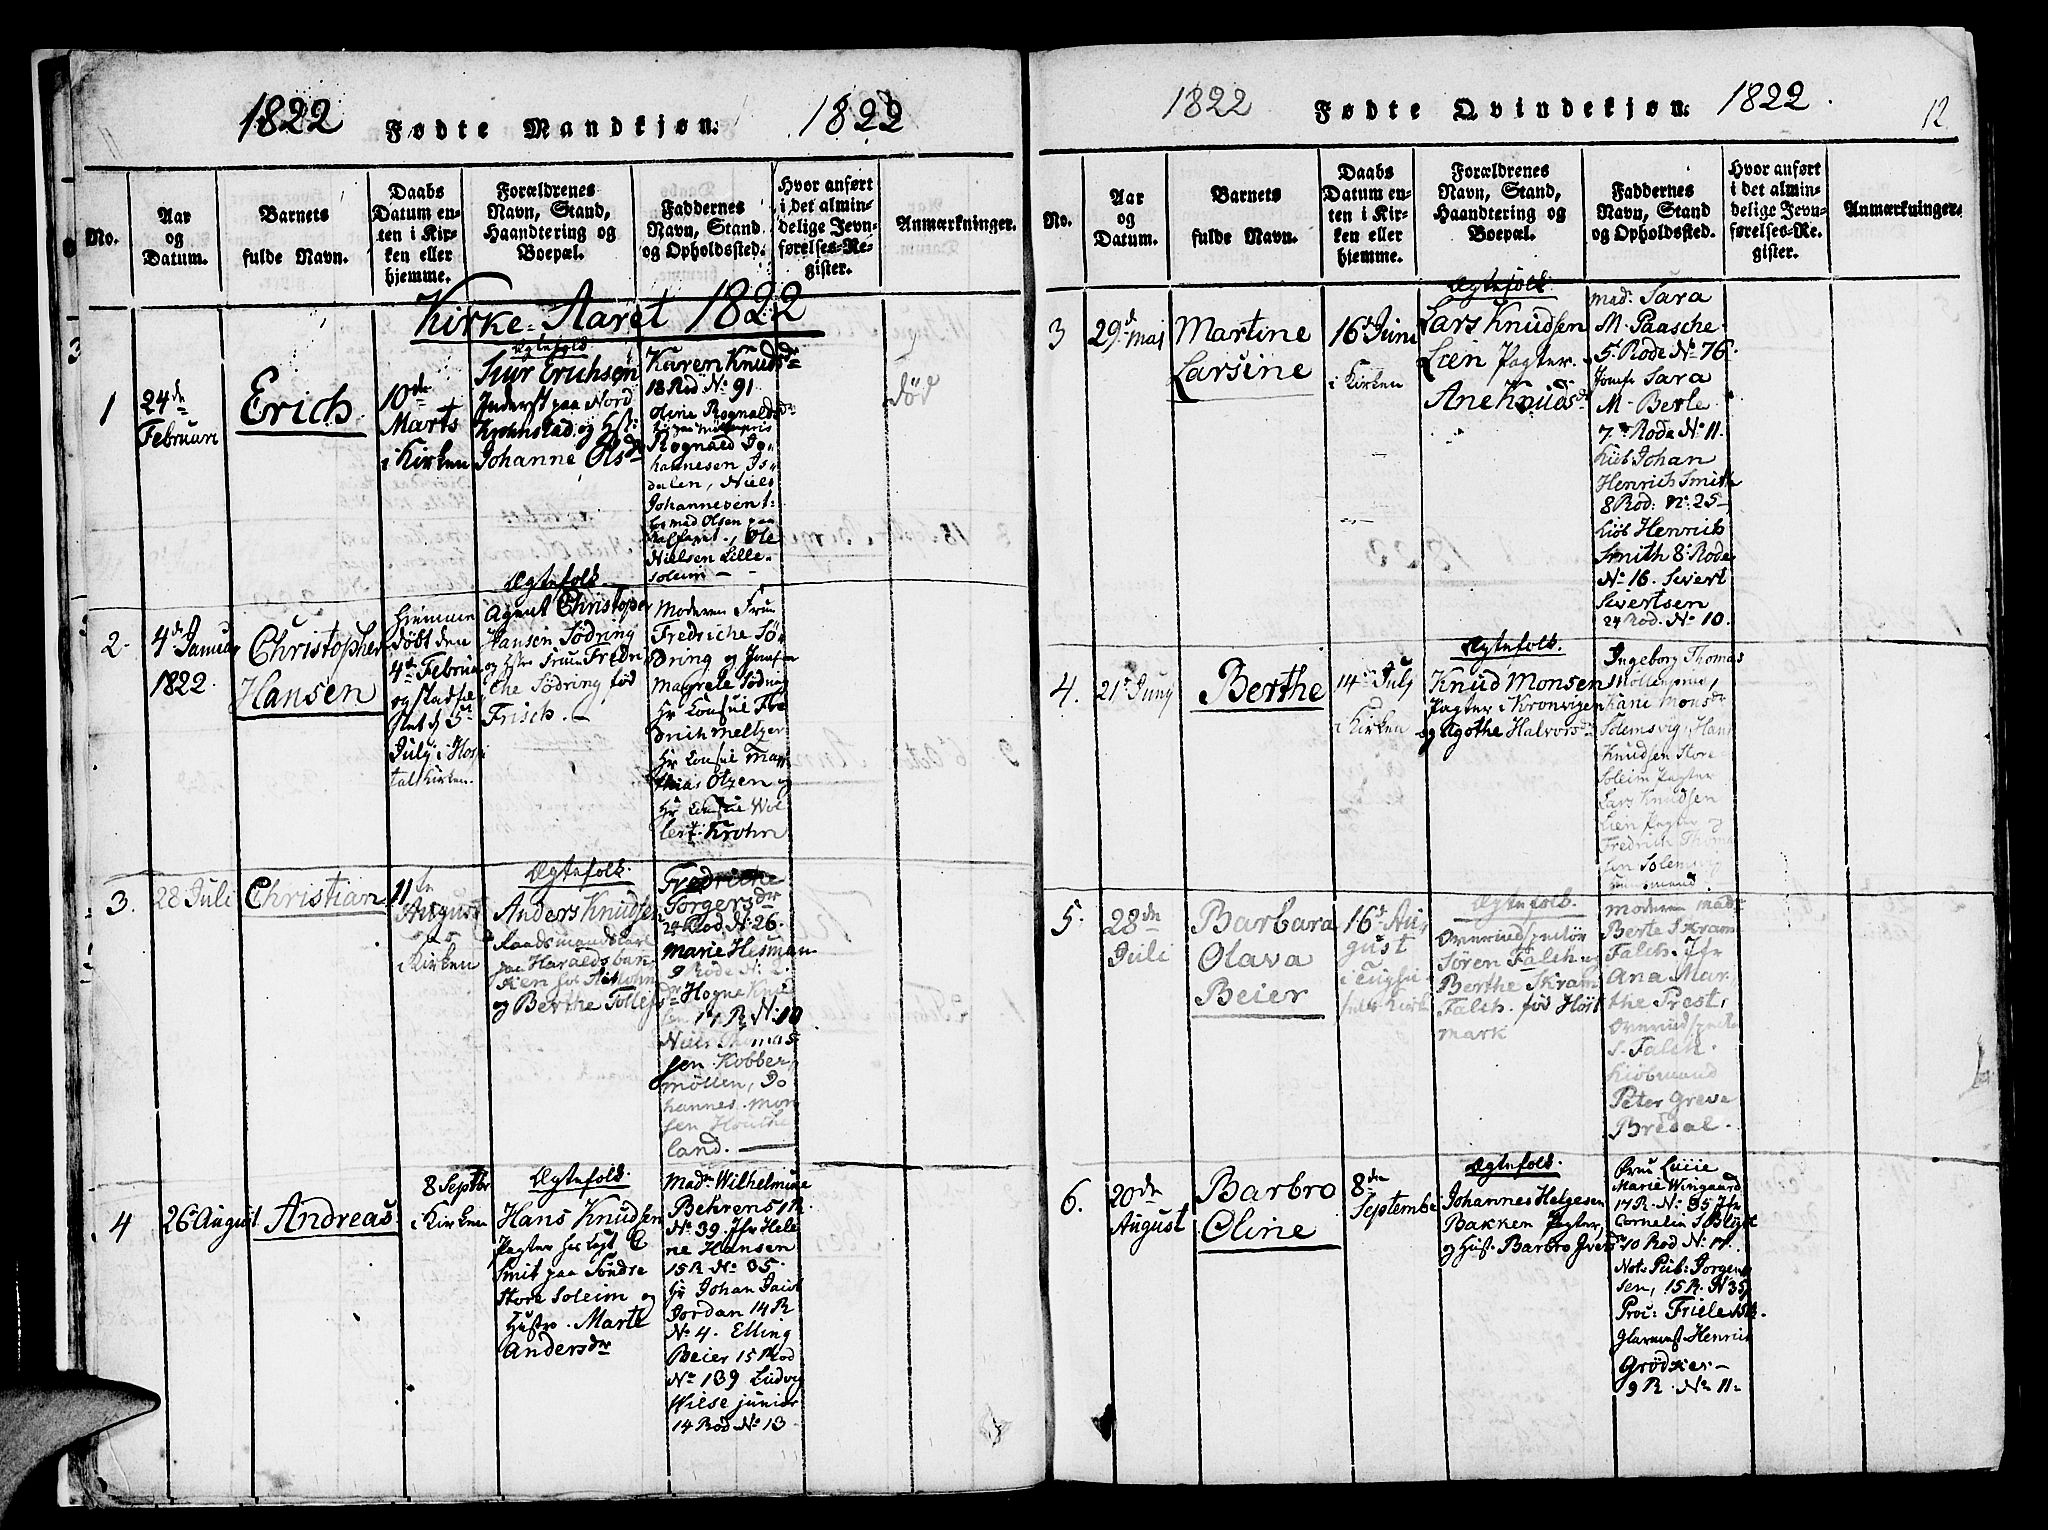 1822 Fødte Mandkjøn. 1822
No.
Aar
og
Datum.
Barnets
fulde Navn.
Daabs
Datum en-
ten i Kir-
ken eller
hjemme.
Forældrenes
Navn, Stand,
Haandtering og
Boepæl.
Faddernes
Navn, Stand
og Opholdssted.
Hvor anført
i det almin-
delige Jevn-
førelses-Re-
gister.
Anmærkninger.
Kirke-Aaret 1822
1
24de
Februari
Erich
10de
Marts
i Kirken
Ægtefolk
Siur Erichsen
Inderst paa Nord
Krohnstad og Hst:
Johanne Olsdr
Karen Knudsdr
18 Rod No 91
Oline Rognaldsdr
Rognald Jo-
hannesen Is-
dalen, Niels
Johannesen t:
hos mad Olsen paa
Kalfaret, Ole
Nielsen Lille-
Soleim
død
2
4de Januar
1822
Christopher
Hansen
Hiemme
døbt den
4de Februar
og stadfæ-
stet d 5te
Julj i Hospi
talKirken.
Ægtefolk.
Agent Christopher
Hansen Södring
og Hstr Fruu Fredri
che Södring fød
Frisch.
Moderen Fruu
Fredriche Sö-
dring og Jomfru
Magrete Södring
Hr Consul Fre
drich Meltzer
Hr Consul Mat
thias Olzen og
Hr Consul Wol
lert Krohn
3.
28 Juli
Christian
11te
August
i Kirken
Ægtefolk.
Anders Knudsen
Raadsmandskarl
paa Haraldsbak-
ken hos
og Berthe Tollefsdr
Fredriche
Torgersdr
24 Rod No 26.
Marie Hesman
9 Rode No 2.
Hogne Knud
sen
17 R. No 10
Niels Thomas
sen Kobber-
möllen, Jo
hannes Mon
sen Houche
land.
4
26 August
Andreas
8 Septbr
i Kirken
Ægtefolk.
Hans Knudsen
Pagter hos Capt C
Smit paa Söndre
Store Soleim og
Hustro. Marte
Andersdr
Made Wilhelmine
Behren 51 R
No 39. Jfr Hele
ne Hansen
15 R No 35.
Hr Johan Jacob
Jordan 14 R
No 4. Elling
Beier 15 Rod
No 139 Ludvig
Wilse junior
14 Rod No 13
1822 Fødte Qvindekjøn. 1822.
12
No.
Aar
og
Datum.
Barnets
fulde Navn.
Daabs
Datum en-
ten i Kir-
ken eller
hjemme.
Forældrenes
Navn, Stand,
Haandtering og
Boepæl.
Faddernes
Navn, Stand
og Opholdssted.
Hvor anført
i det almin-
delige Jevn-
førelses-Re-
gister.
Anmærkninger.
3
29d Maj
Martine
Larsine
16d Juni
i Kirken
Ægtefolk
Lars Knudsen
Lien Pagter.
Ane Knudsdr
Mad: Sara
M. Paasche
5 Rode No 76.
Jomfr Sara
M. Berle
7 Rode No 11.
Kiöb Johan
Henrich Smith
8 Rod: No. 25
Kiöb Henrich
Smith 8 Rode
No 16. Sivert
Sivertsen
24 Rod. No 10.
4.
21d Junj
Berthe
14 Julj
i Kirken
Ægtefolk.
Knud Monsen
Pagter i Kronvigen
og Agothe Halvorsdr
Ingeborg Thomas
Möllengsned,
Kari Monsdr
Solemsvig, Hans
Knudsen Store
Soleim Pagter
Lars Knudsen
Lien Pagter og
Fredrich Thoma
sen Solemsvig
5.
28de
Juli
Barbara
Olava
Beier
16d Au-
gust
i
Ægtefolk.
Overindspectör
Sören Falch og
Berthe Skram
Falch. fød Hørt
mark
Moderen Mad:
Berte Skram
Falch. Jfr
Ana Mar-
the Prest,
Overindspectör
S. Falch.
Kiöbmand
Peter Greve
Bredal.
6.
20de
August
Barbro
Oline
8de
Septembe
Ægtefolk.
Johannes Helgesen
Bakken Pagter,
og Hust. Barbro Iversdr
Marie Wingaard
17 R. No 35 Jfr
Cornelia S Blytt
10 Rod No 17.
Not. Pub: Jorgen
sen, 15 R. No 35
Proc: Friele
Glarmest Henrich
Grödker
9 R. No 11.